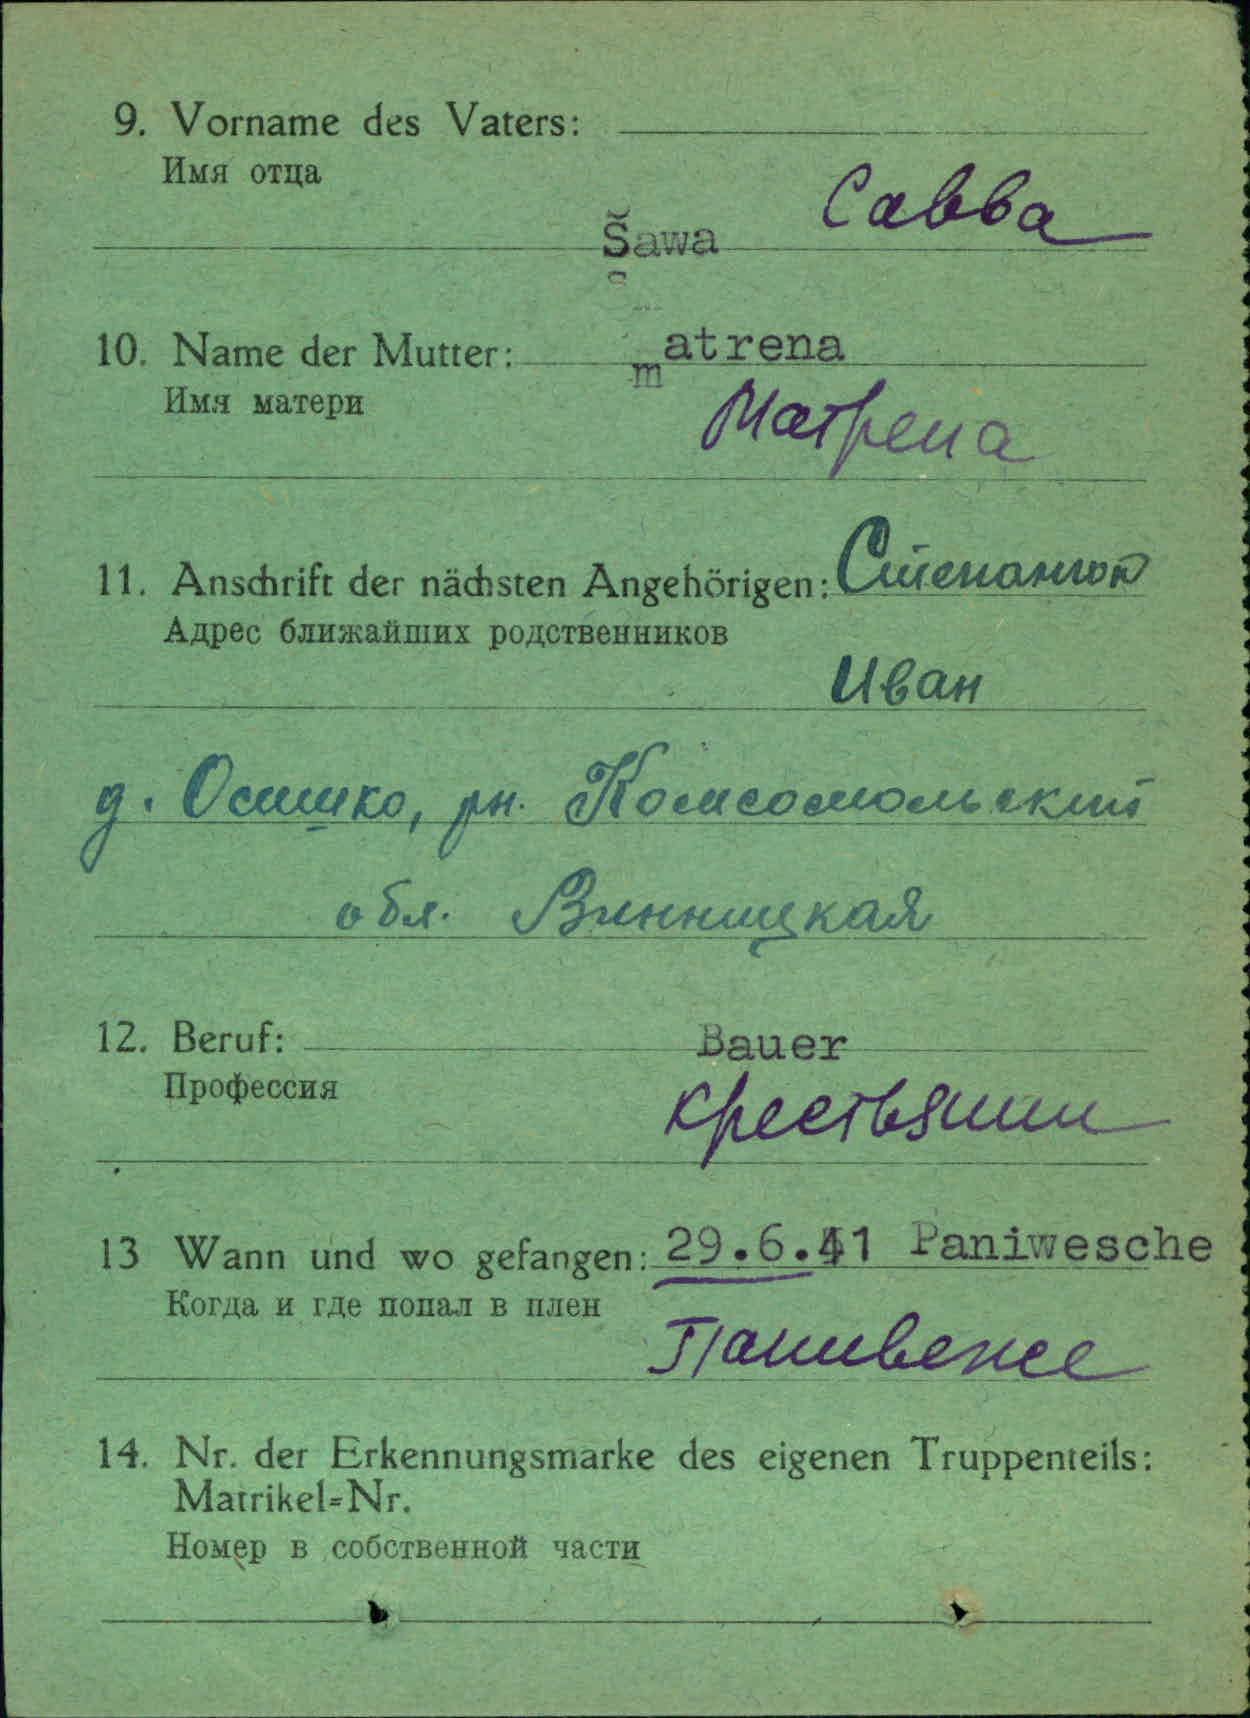 9. Vorname des Vaters:
Имя отца
Савва
Šawa
10. Name der Mutter: matrena
Имя матери
Матрена
11. Anschrift der nächsten Angehörigen: Степанюк
Адрес ближайших родственников
Иван
д. Осишко, рн. Комсомольский
обл. Винницкая
12. Beruf: Bauer
Профессия
крестьянин
13 Wann und wo gefangen: 29.6.41 Paniwesche
Когда и где попал в плен
Паневеже
14. Nr. der Erkennungsmarke des eigenen Truppenteils:
Matrikel=Nr.
Номер в собственной части